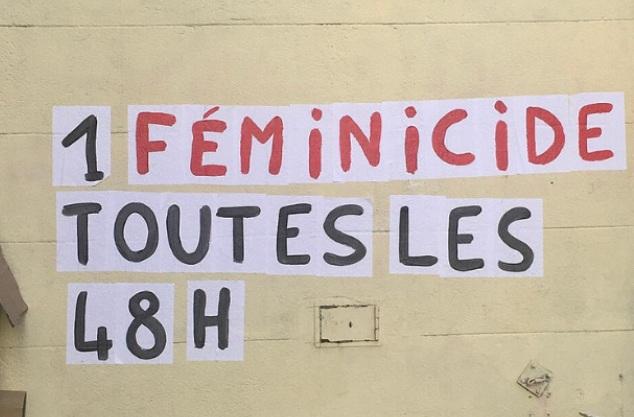 1 FÉMINICIDE
TOUTES LES
48 H